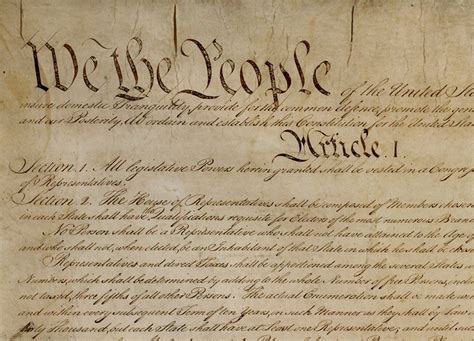 We the People of the United Sta
insure domestic Tranquility, provide for the common defence, promote the gen
and our Posterity, do ordain and establish this Constitution for the United Stat
Article. I.
Section. 1. All legislative Powers herein granted shall be vested in a Congre
of Representatives.
Section. 2. The House of Representatives shall be composed of Members chosen
in each State shall have Qualifications requisite for Electors of the most numerous Bran
No Person shall be a Representative who shall not have attained to the Age of
and who shall not, when elected, be an Inhabitant of that State in which he shall be chosen
Representatives and direct Taxes shall be apportioned among the several States
Numbers, which shall be determined by adding to the whole Number of free Persons, includ
not taxed, three fifths of all other Persons. The actual Enumeration shall be made
and within every subsequent Term of ten Years, in such Manner as they shall by Law
thirty Thousand, but each State shall have at Least one Representative; and until such